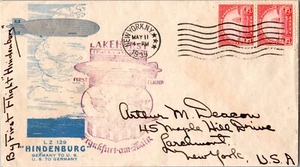 NEW YORK, N.Y.
MAY 11
LAKEH
By First Flight "Hindenburg"
L Z 129
HINDENBURG
GERMANY TO U. S.
U. S. TO GERMANY
Frankfurt am Main
Arthur M. Deacon
45 Maple Hill Drive
Larchmont
New York,
U.S.A